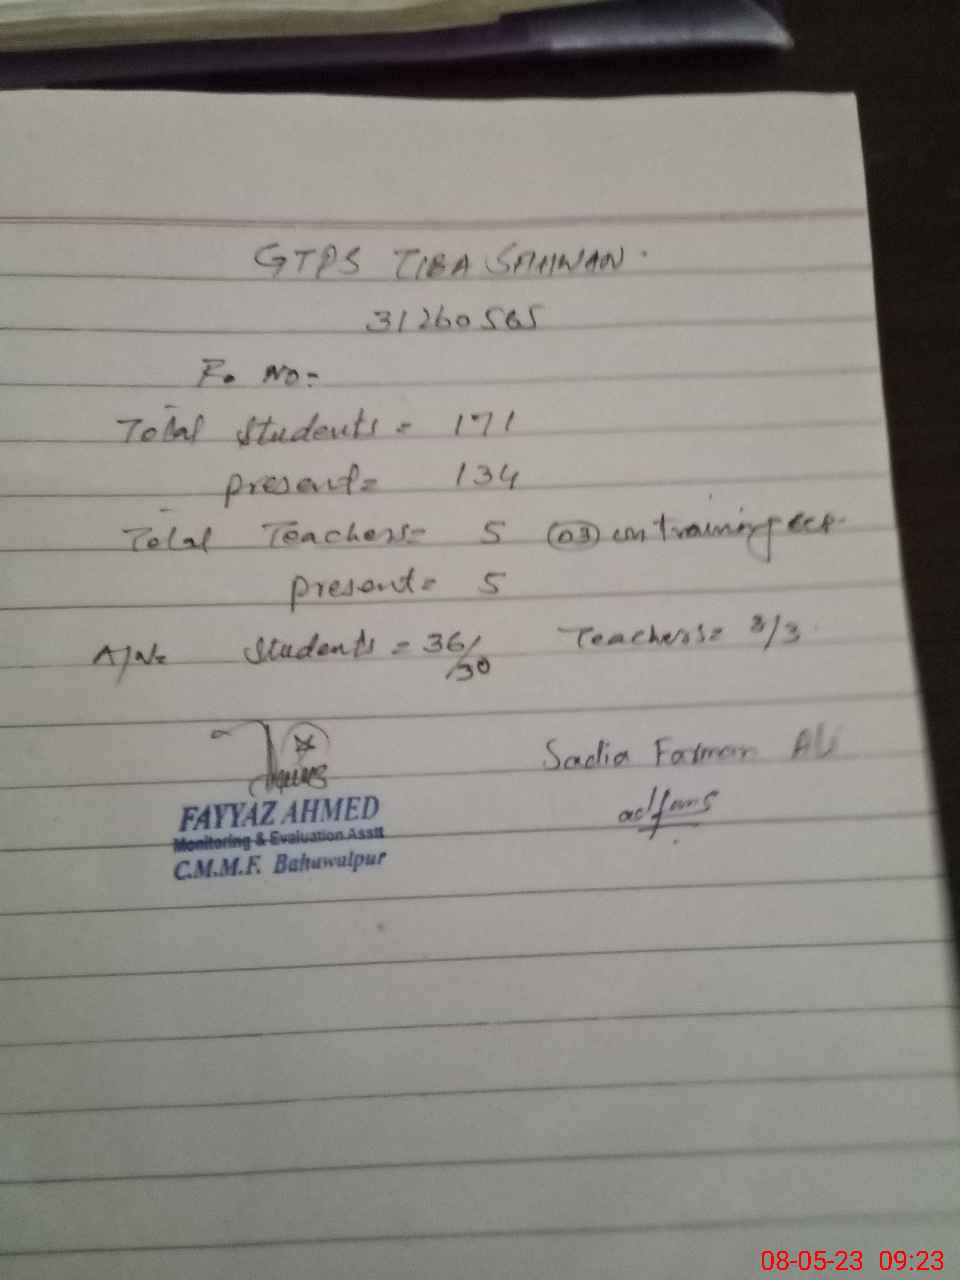 GTPS TIBA SAHWAN.
31260565
F. No:-
Total Students = 171
present = 134
Total Teachers = 5 (03) on training
present = 5
A/N= Students = 36/30 Teachers = 3/3
FAYYAZ AHMED
Monitoring & Evaluation Asstt
C.M.M.F. Bahawalpur
Sadia
08-05-23 09:23